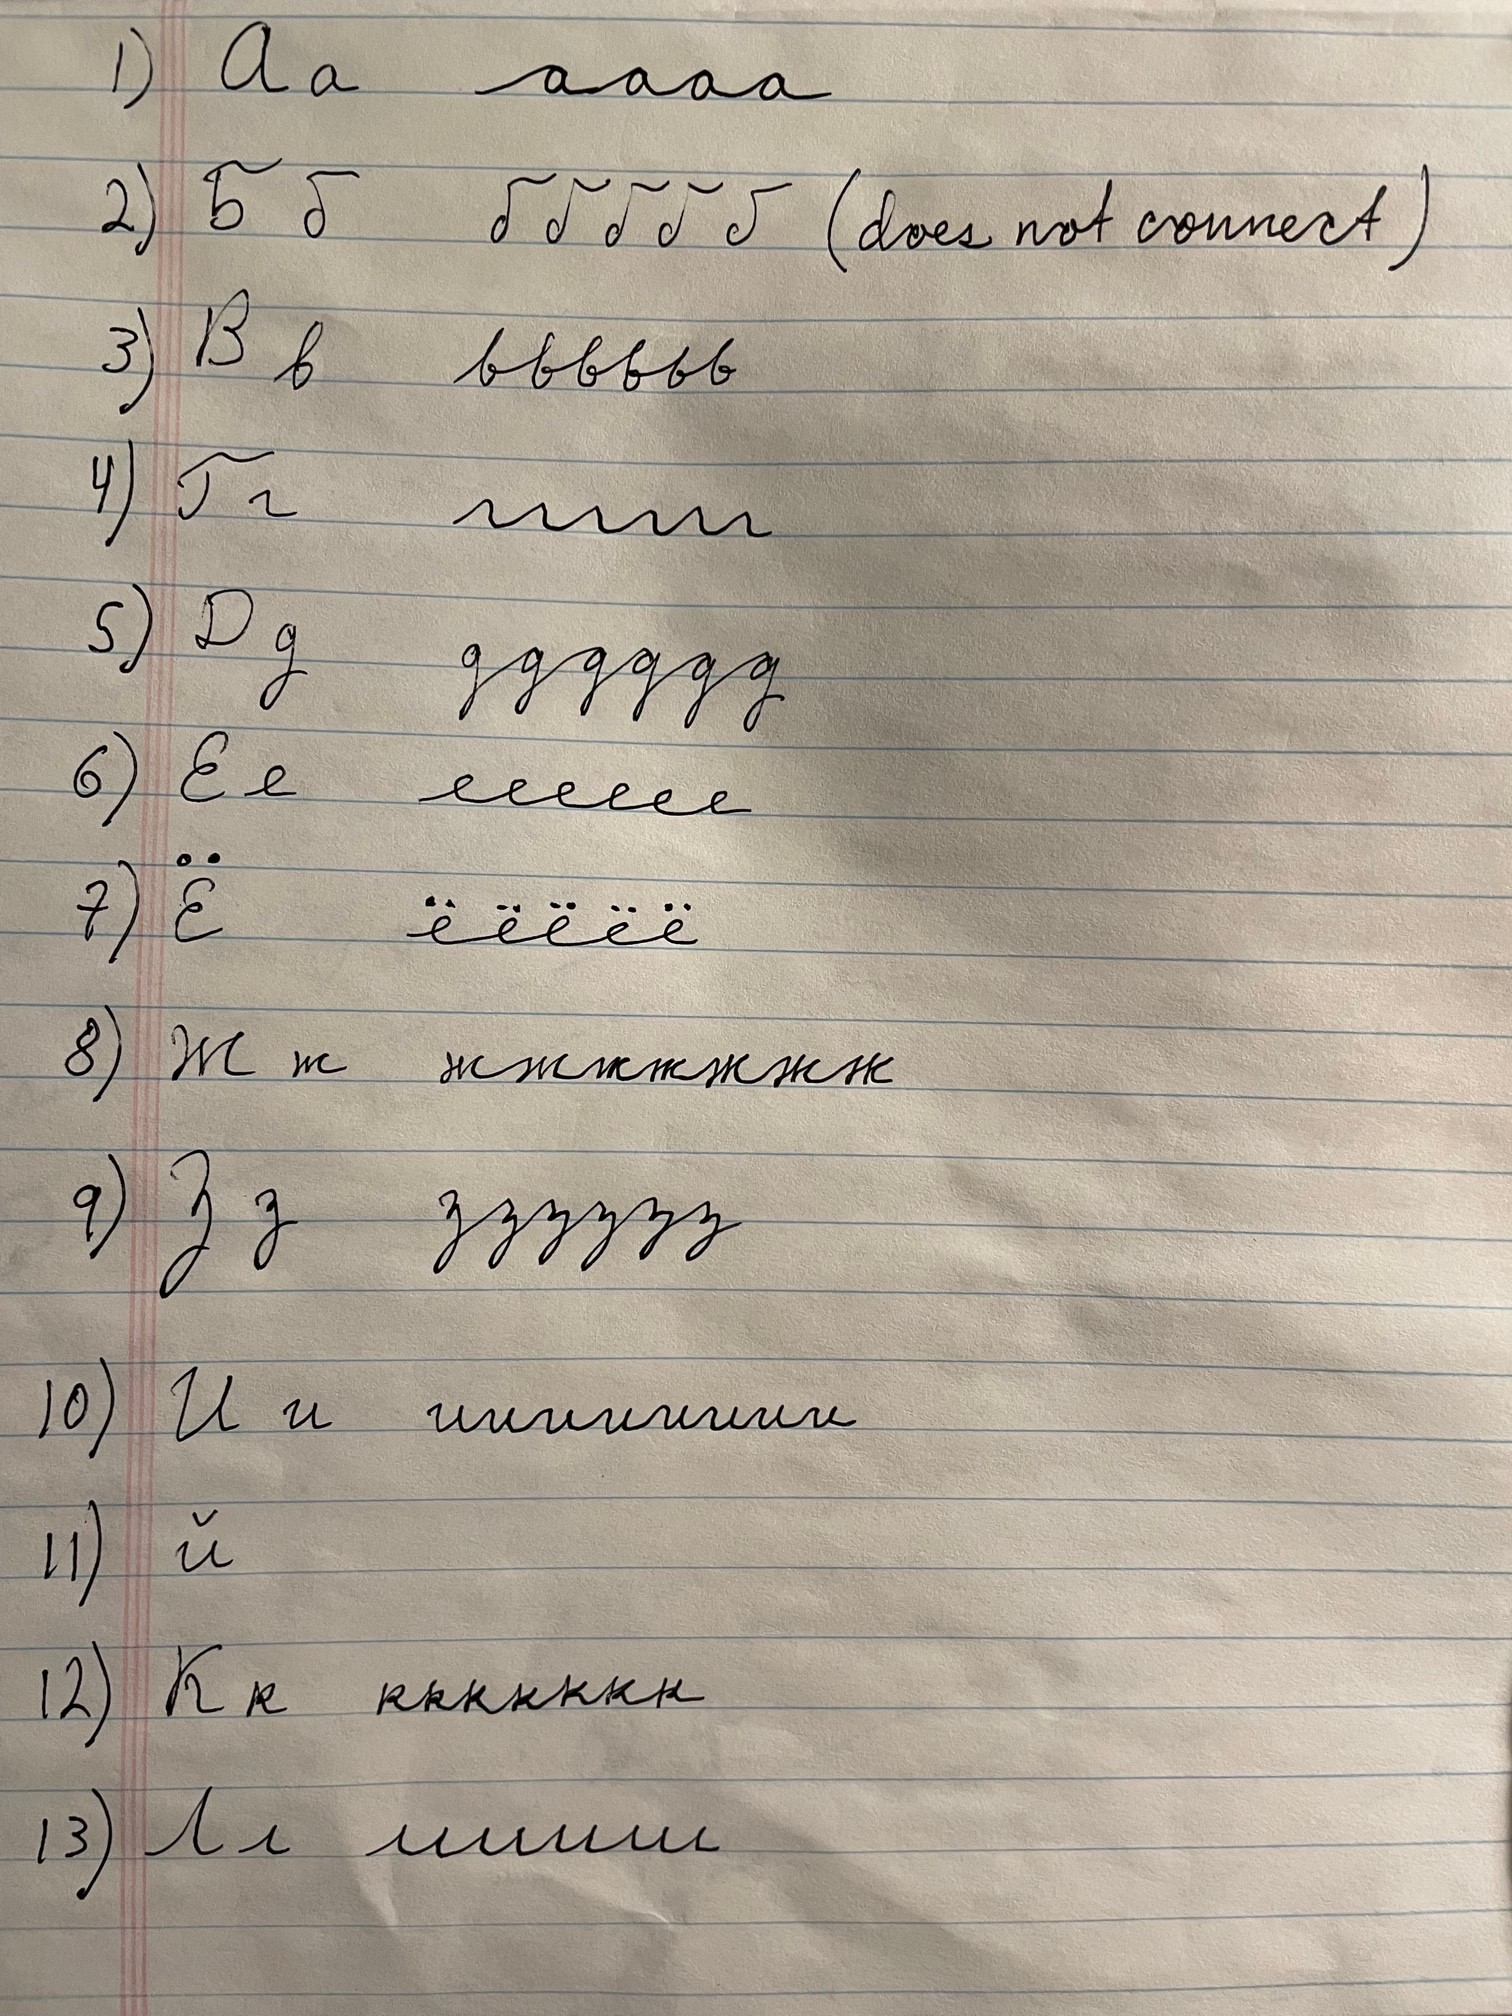 1) А а аааа
2) Б б ббббб (does not connect)
3) В в вввввв
4) Г г гггггг
5) Д д дддддд
6) Е е ееееее
7) Ё ёёёёё
8) Ж ж жжжжжжж
9) З з зззззз
10) И и иииииии
11) й
12) К к ккккккк
13) Л л лллллл